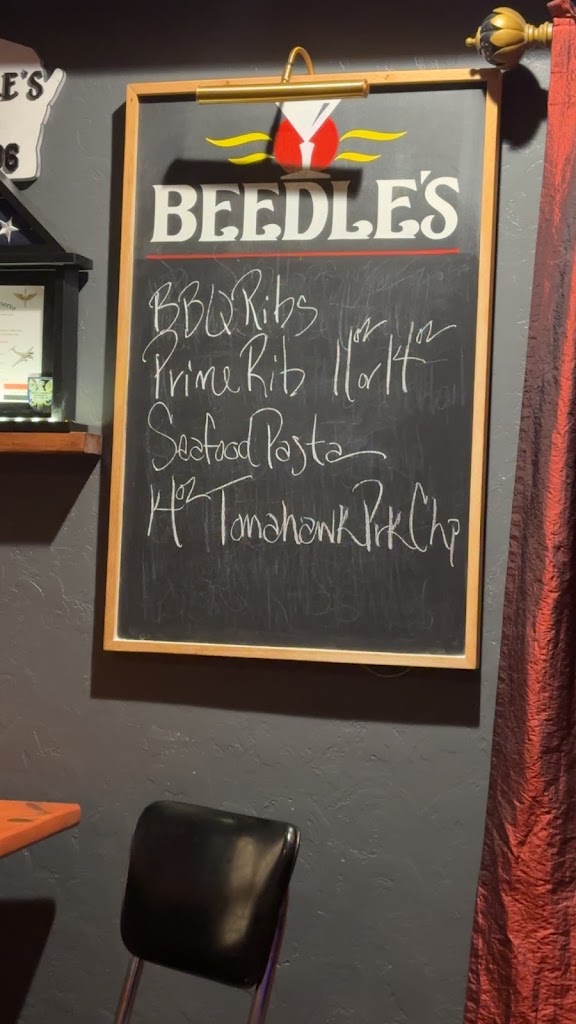 LE'S
06
BEEDLE'S
BBQ Ribs
Prime Rib 11oz or 14oz
Seafood Pasta
14oz Tomahawk Prk Chp